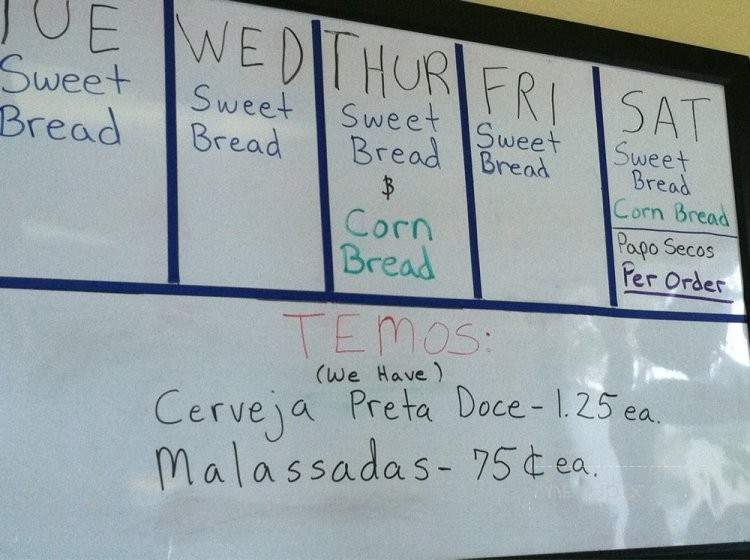 TUE
Sweet
Bread
WED
Sweet
Bread
THUR
Sweet
Bread
&
Corn
Bread
FRI
Sweet
Bread
SAT
Sweet
Bread
Corn Bread
Papo Secos
Per Order
TEMOS:
(We Have)
Cerveja Preta Doce - 1.25 ea.
Malassadas - 75¢ ea.